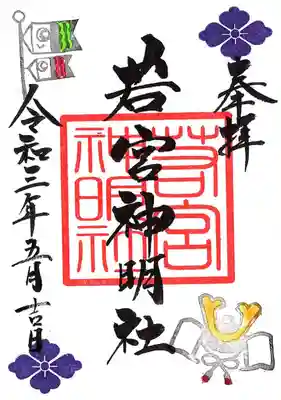 奉拝
若宮神明社
若宮
神明社
令和三年五月吉日